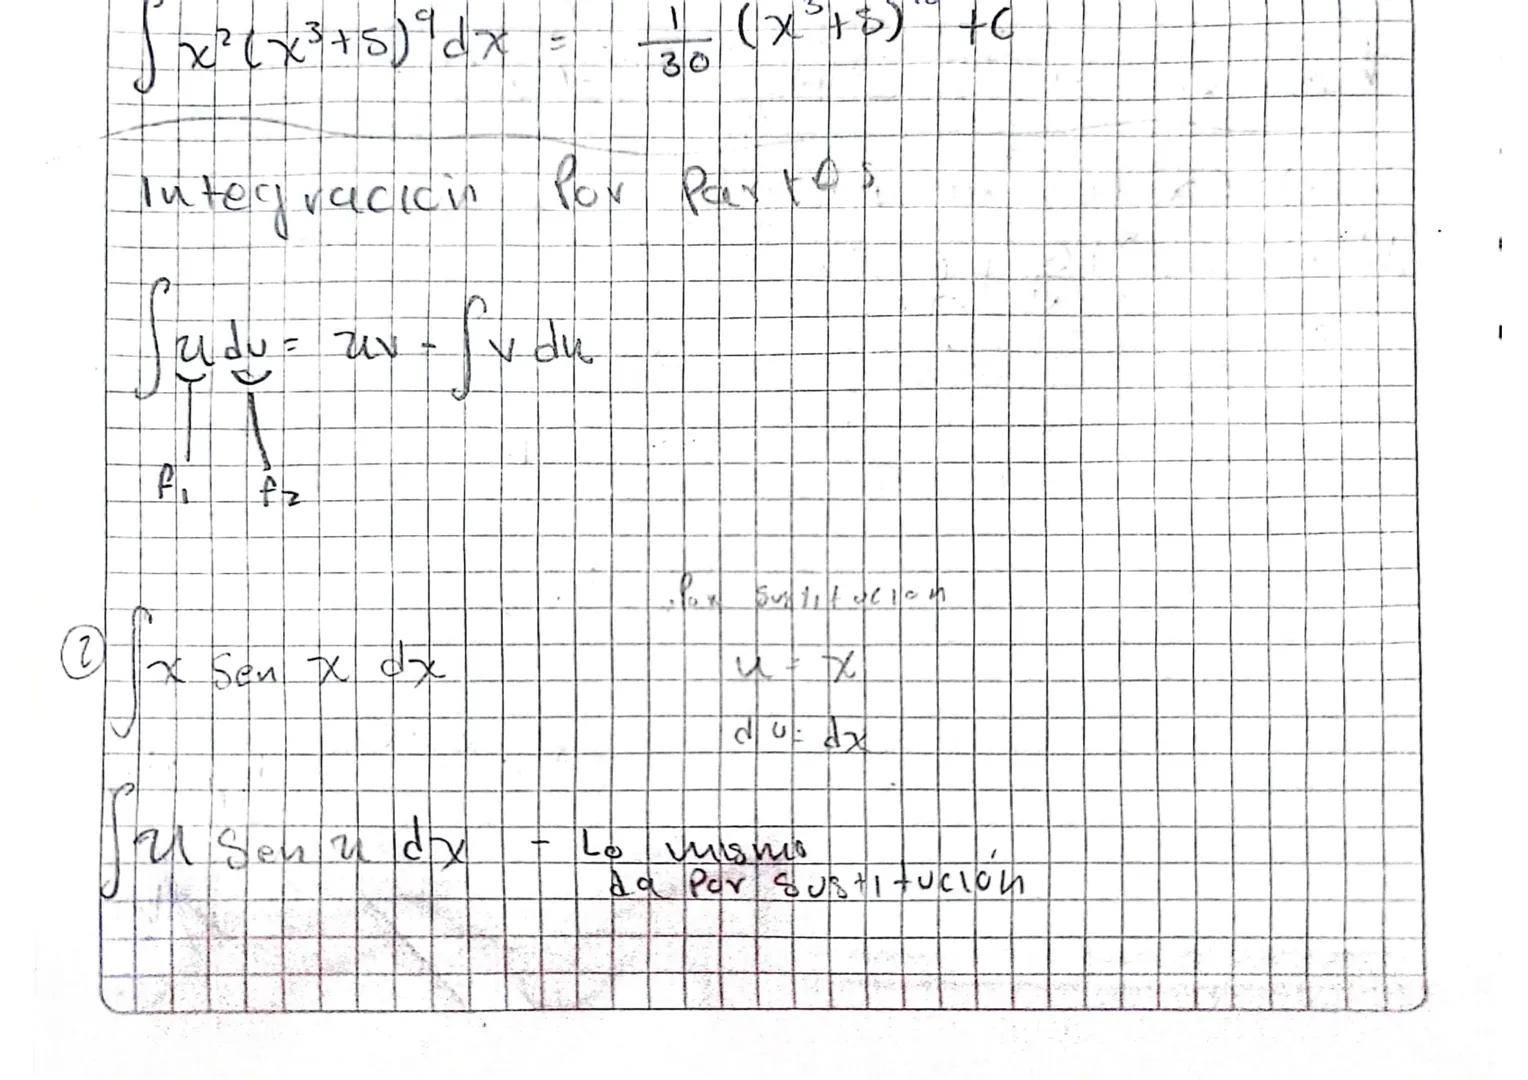 ∫ x²(x³+5)⁹ dx = 1/30 (x³+5)¹⁰ + C
Integración Por Partes
∫ u dv = uv - ∫ v du
f₁ f₂
Por sustitución
② ∫ x Sen x dx
u = x
du = dx
∫ u Sen u dx - Lo mismo
da Por sustitución